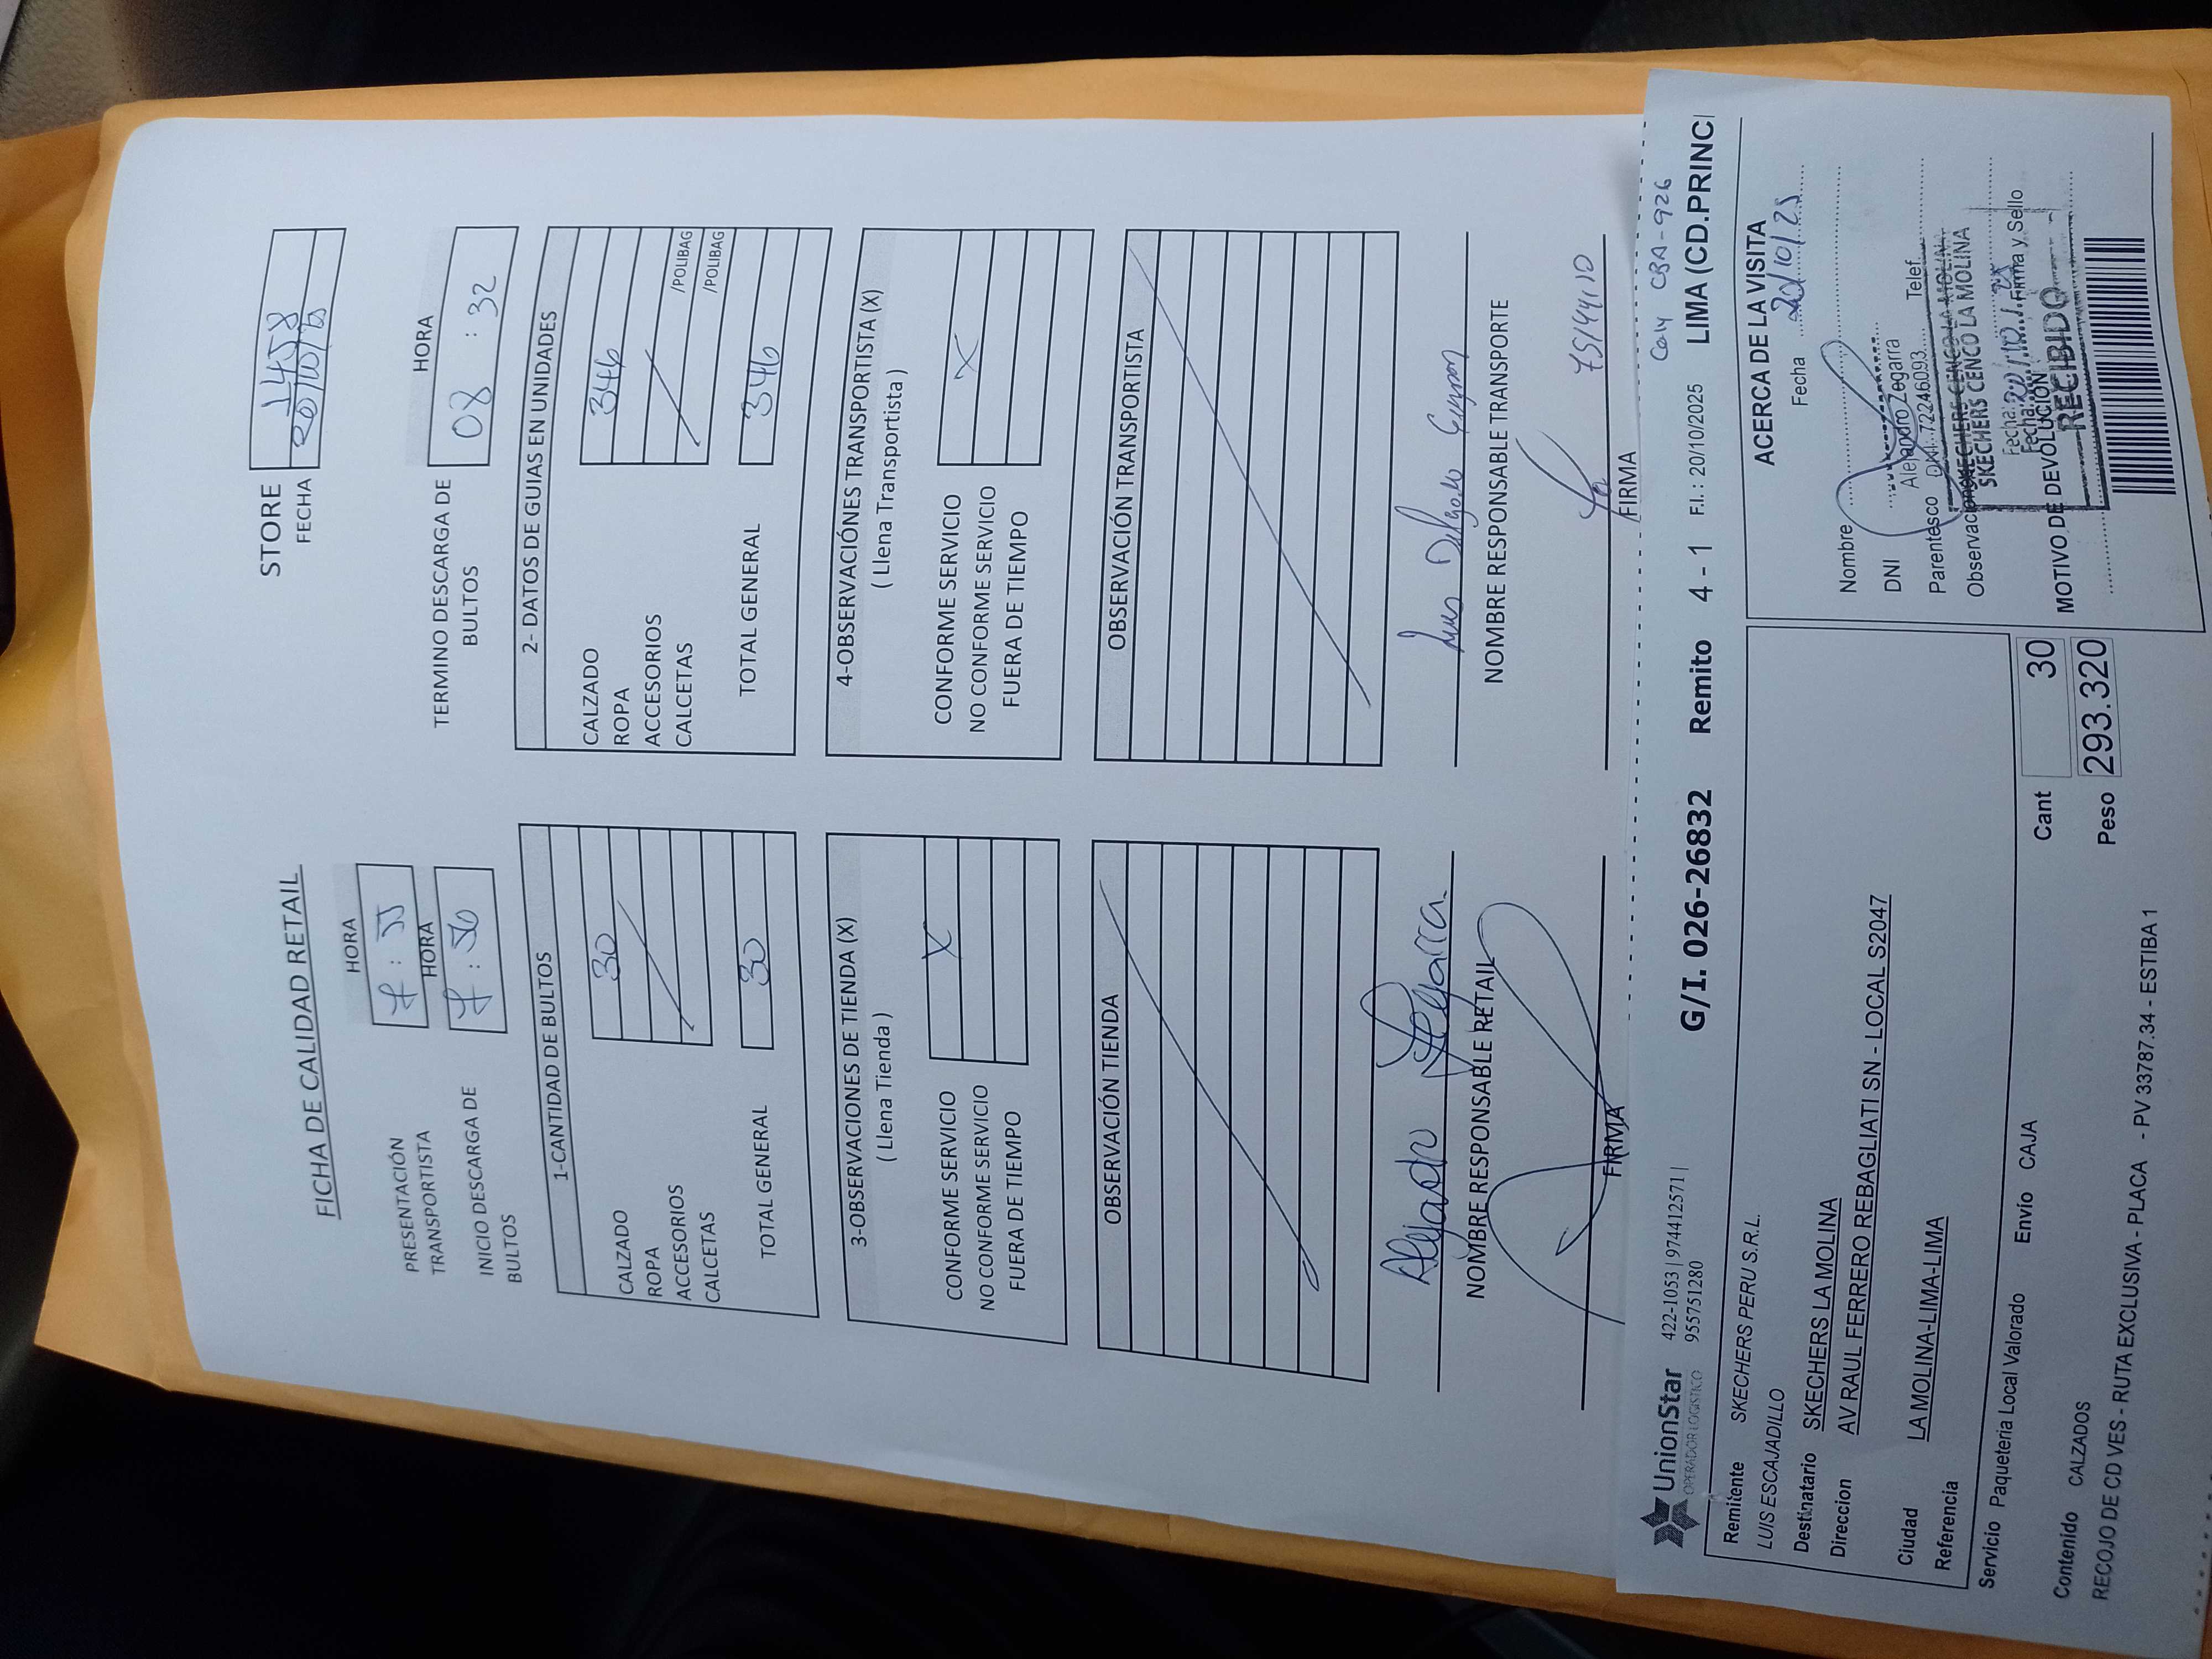 FICHA DE CALIDAD RETAIL
STORE 1458
FECHA 20/10/25
HORA
PRESENTACIÓN
TRANSPORTISTA
HORA
INICIO DESCARGA DE
BULTOS
HORA
TERMINO DESCARGA DE
BULTOS
08 : 32
1-CANTIDAD DE BULTOS
CALZADO 30
ROPA
ACCESORIOS
CALCETAS
TOTAL GENERAL 30
2- DATOS DE GUIAS EN UNIDADES
CALZADO 346
ROPA
ACCESORIOS /POLIBAG
CALCETAS /POLIBAG
TOTAL GENERAL 346
3-OBSERVACIONES DE TIENDA (X)
( Llena Tienda )
CONFORME SERVICIO X
NO CONFORME SERVICIO
FUERA DE TIEMPO
4-OBSERVACIÓNES TRANSPORTISTA (X)
( Llena Transportista )
CONFORME SERVICIO X
NO CONFORME SERVICIO
FUERA DE TIEMPO
OBSERVACIÓN TIENDA
OBSERVACIÓN TRANSPORTISTA
Alejandro Zegarra
NOMBRE RESPONSABLE RETAIL
FIRMA
Luis Delgado
NOMBRE RESPONSABLE TRANSPORTE
FIRMA
UnionStar
OPERADOR LOGISTICO
422-1053 | 974412571 |
955751280
G/I. 026-26832 Remito 4 - 1 F.I. : 20/10/2025 LIMA (CD.PRINCI
CBA-926
Remitente SKECHERS PERU S.R.L.
LUIS ESCAJADILLO
Destinatario SKECHERS LA MOLINA
Direccion AV RAUL FERRERO REBAGLIATI SN - LOCAL S2047
Ciudad LA MOLINA-LIMA-LIMA
Referencia
Servicio Paqueteria Local Valorado Envío CAJA
Cant 30
Contenido CALZADOS
Peso 293.320
RECOJO DE CD VES - RUTA EXCLUSIVA - PLACA - PV 33787.34 - ESTIBA 1
ACERCA DE LA VISITA
Fecha 20/10/25
Nombre
DNI
Alejandro Zegarra
Parentesco DNI: 72246093 Telef
Observac
SKECHERS CENCO LA MOLINA
SKECHERS CENCO LA MOLINA
Fecha: 20/10/25
Fecha: Firma y Sello
MOTIVO DE DEVOLUCIÓN
RECIBIDO